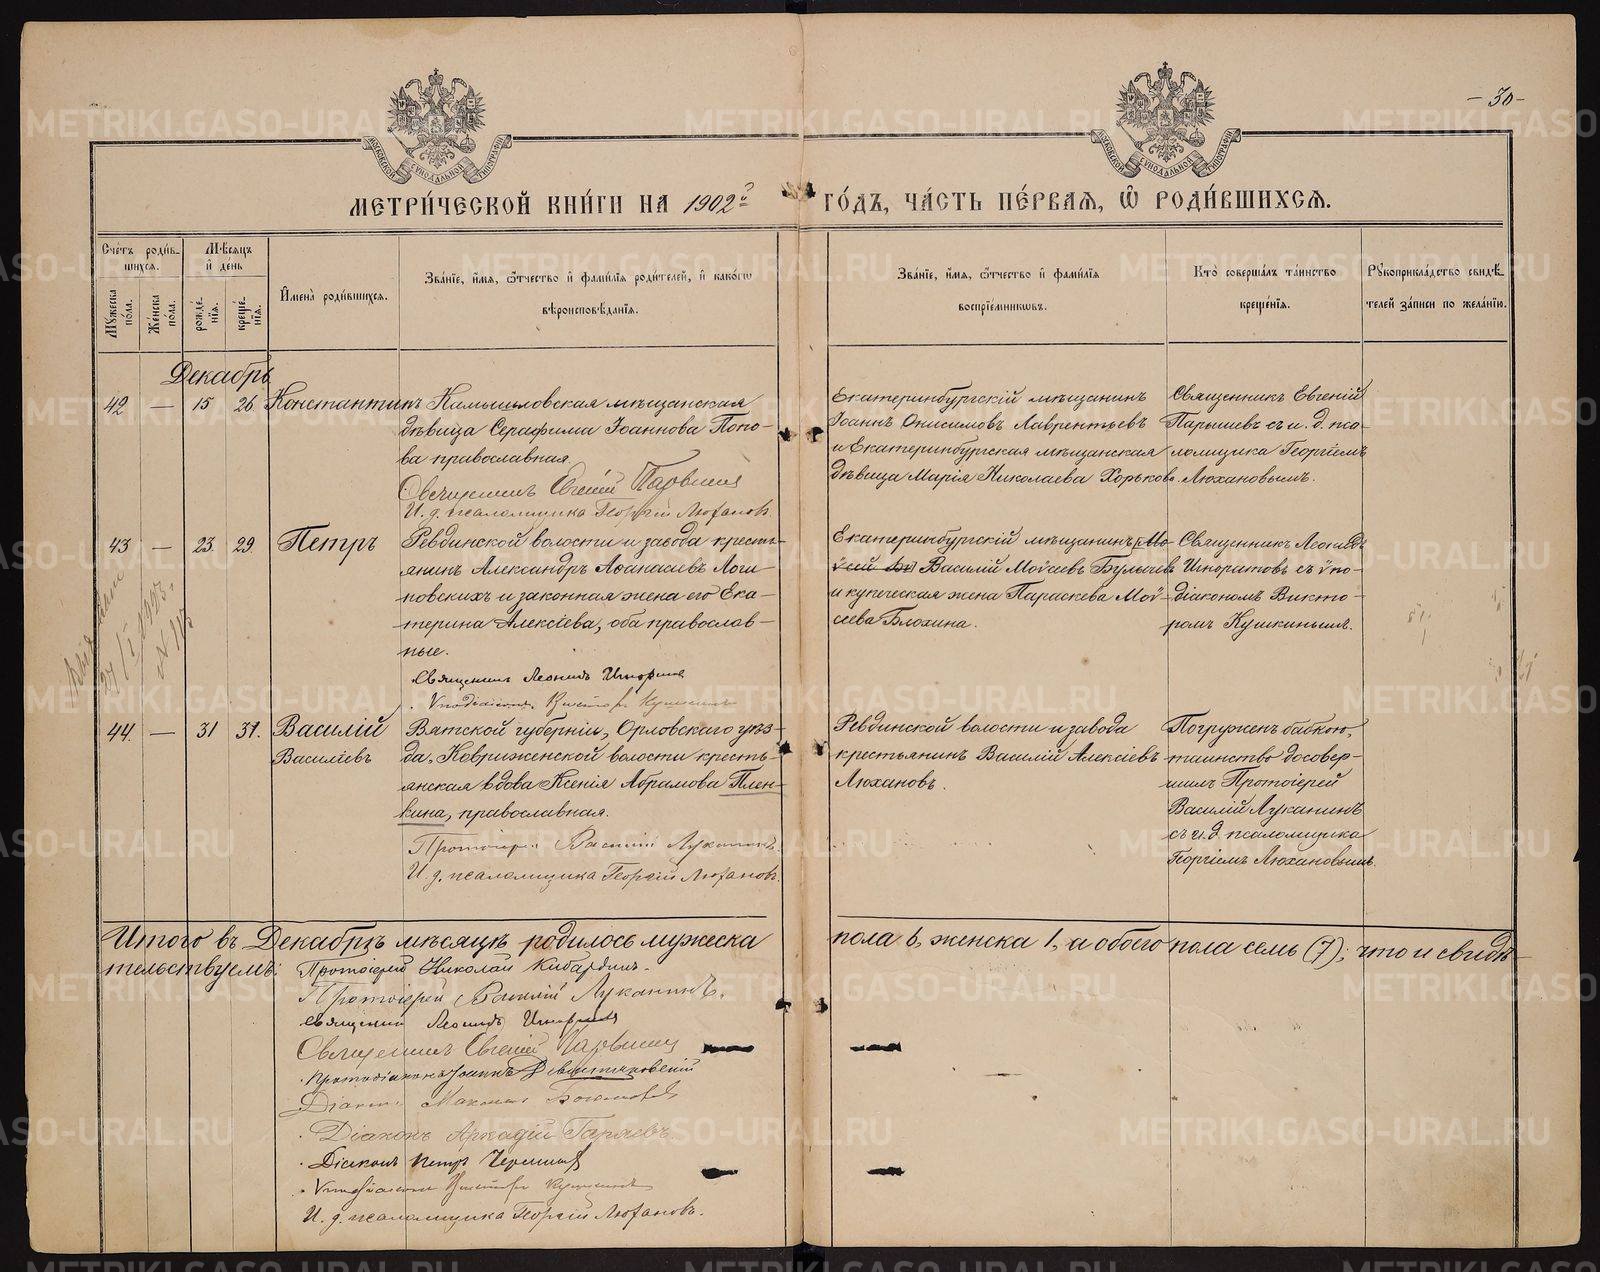 - 30 -
МОСКОВСКОЙ СѴНОДАЛЬНОЙ ТИПОГРАФІИ
МОСКОВСКОЙ СѴНОДАЛЬНОЙ ТИПОГРАФІИ
МЕТРИ́ЧЕСКОЙ КНИ́ГИ НА 1902й ГО́ДЪ, ЧА́СТЬ ПЕ́РВАЯ, Ѽ РОДИ́ВШИХСѦ.
Сче́тъ роди́вшихся.
Мѣ́сяцъ и де́нь
Мꙋ́жеска по́ла.
Же́нска по́ла.
рожде́нїѧ.
креще́нїѧ.
И҆мена̀ роди́вшихсѧ.
Зва́нїе, и҆́мѧ, ѻ҆́тчество и҆ фами́лїѧ роди́телей, и҆ како́гѡ вѣроисповѣ́данїѧ.
Зва́нїе, и҆́мѧ, ѻ҆́тчество и҆ фами́лїѧ воспрїе́мникѡвъ.
Кто̀ соверша́лъ та́инство креще́нїѧ.
Рꙋкоприкла́дство свидѣ́телей за́писи по жела́нїю.
Декабрь
42 — 15 26 Константинъ
Камышловская мѣщанская
дѣвица Серафима Іоаннова Попо-
ва православная.
Священникъ Евгеній
И. д. псаломщика Георгій Люхановъ
Екатеринбургскій мѣщанинъ
Іоаннъ Онисимовъ Лаврентьевъ
и Екатеринбургская мѣщанская
дѣвица Марія Николаева Хорькова.
Священникъ Евгеній
Парышевъ съ и. д. пса-
ломщика Георгіемъ
Люхановымъ.
43 — 23. 29. Петръ
Ревдинской волости и завода кресть-
янинъ Александръ Аѳанасіевъ Логи-
новскихъ и законная жена его Ека-
терина Алексіева, оба православ-
ные.
Священникъ Леонидъ Игноратовъ
Ѵподіаконъ Викторъ Кушкинъ
Екатеринбургскій мѣщанинъ Мо-
ѵсей Василій Моѵсеевъ Булычевъ
и купеческая жена Параскева Моѵ-
сеева Блохина.
Священникъ Леонидъ
Игноратовъ съ ѵпо-
діакономъ Викто-
ромъ Кушкинымъ.
24/I 1903.
44. — 31 31. Василій
Василіевъ
Вятской губерніи, Орловскаго уѣз-
да, Кевриженской волости кресть-
янская вдова Ксенія Абрамова Плен-
кина, православная.
Протоіерей Василій Луканинъ
И. д. псаломщика Георгій Люхановъ.
Ревдинской волости и завода
крестьянинъ Василій Алексіевъ
Люхановъ.
Погруженъ бабкою,
таинство довер-
шилъ Протоіерей
Василій Луканинъ
съ и. д. псаломщика
Георгіемъ Люхановымъ.
Итого въ Декабрѣ мѣсяцѣ родилось мужеска пола 6, женска 1, а обоего пола семь (7); что и свидѣ-
тельствуемъ:
Протоіерей Николай Кибардинъ.
Протоіерей Василій Луканинъ.
Священникъ Леонидъ Игноратовъ
Священникъ Евгеній
Протодіаконъ Іоаннъ
Діаконъ Максимъ
Діаконъ Аркадій Гаряевъ
Діаконъ Петръ
Ѵподіаконъ Викторъ Кушкинъ
И. д. псаломщика Георгій Люхановъ.
METRIKI.GASO-URAL.RU